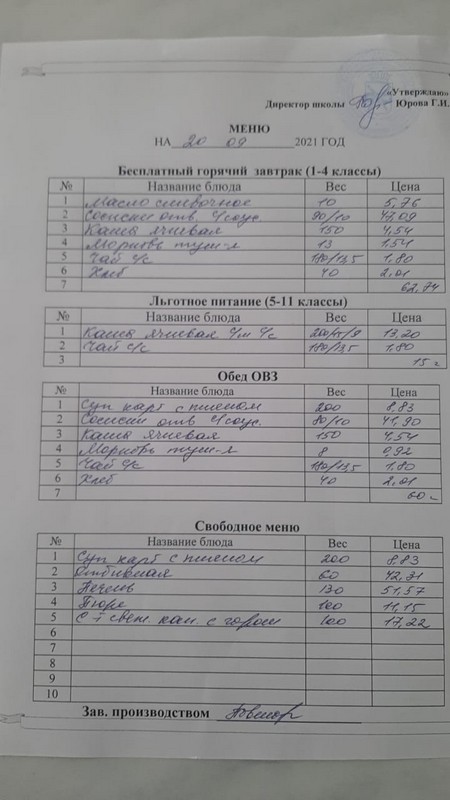 «Утверждаю»
Директор школы Юрова Г.И.
МЕНЮ
НА 20 09 2021 ГОД
Бесплатный горячий завтрак (1-4 классы)
№ Название блюда Вес Цена
1 Масло сливочное 10 5,76
2 Сосиски отв. с/соус. 90/10 47,09
3 Каша ячневая 150 4,54
4 Морковь туш-я 13 1,54
5 Чай с/с 180/13,5 1,80
6 Хлеб 40 2,01
7 62,74
Льготное питание (5-11 классы)
№ Название блюда Вес Цена
1 Каша ячневая с/м с/с 200/5/8 13,20
2 Чай с/с 180/13,5 1,80
3 15
Обед ОВЗ
№ Название блюда Вес Цена
1 Суп карт с пшеном 200 8,83
2 Сосиски отв с/соус. 80/10 41,90
3 Каша ячневая 150 4,54
4 Морковь туш-я 8 0,92
5 Чай с/с 180/13,5 1,80
6 Хлеб 40 2,01
7 60
Свободное меню
№ Название блюда Вес Цена
1 Суп карт с пшеном 200 8,83
2 Отбивная 60 42,71
3 Печень 130 51,57
4 Пюре 100 11,15
5 С-т свеж. кап. с горош 100 17,22
6
7
8
9
10
Зав. производством